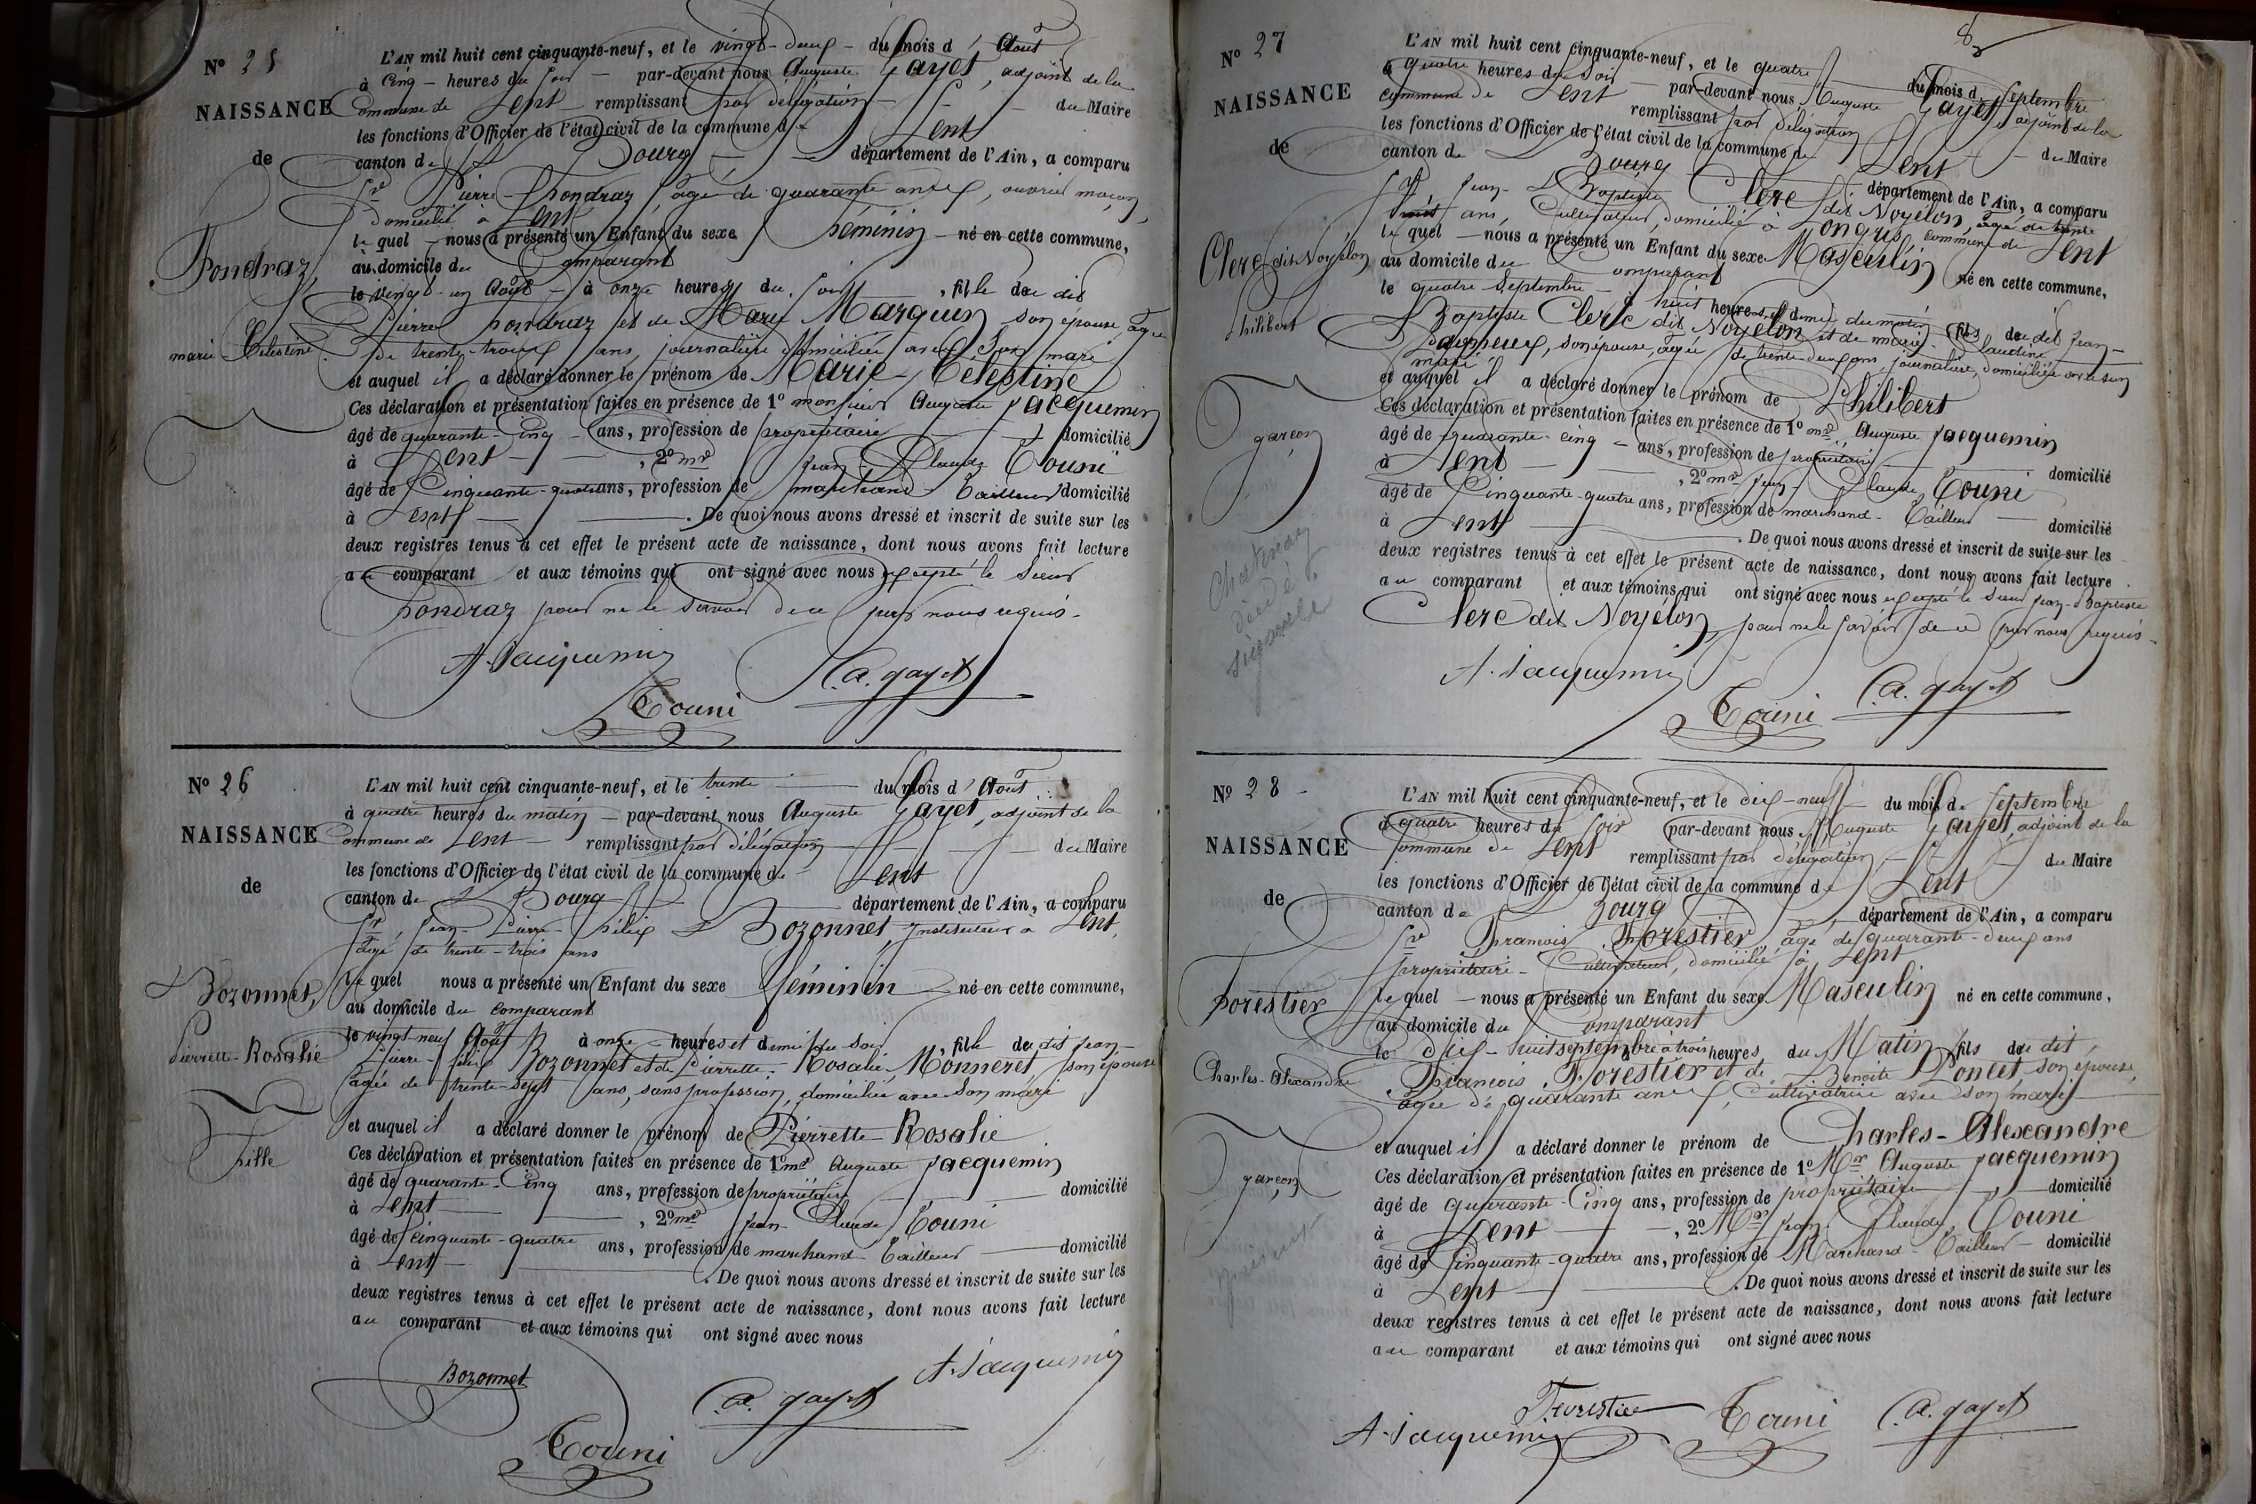 N° 25
NAISSANCE
de
Fondraz,
Marie Célestine
L'AN mil huit cent cinquante-neuf, et le vingt-deux du mois d'Août
à cinq heures du soir par-devant nous Auguste Gayet, adjoint de la
commune de Lent remplissant par délégation du Maire
les fonctions d'Officier de l'état civil de la commune de Lent
canton de Bourg département de l'Ain, a comparu
Sr Pierre Fondraz, âgé de quarante ans, ouvrier maçon,
domicilié à Lent
lequel nous a présenté un Enfant du sexe Féminin né en cette commune,
au domicile du comparant
le vingt-un Août à onze heures du soir, fille du dit
Pierre Fondraz et de Marie Marguin son épouse âgée
de trente-trois ans, journalière domiciliée avec son mari
et auquel il a déclaré donner le prénom de Marie-Célestine
Ces déclaration et présentation faites en présence de 1° monsieur Auguste Jacquemin
âgé de quarante-cinq ans, profession de propriétaire domicilié
à Lent, 2° mr Jean-Claude Touni
âgé de cinquante-quatre ans, profession de marchand-tailleur domicilié
à Lent. De quoi nous avons dressé et inscrit de suite sur les
deux registres tenus à cet effet le présent acte de naissance, dont nous avons fait lecture
au comparant et aux témoins qui ont signé avec nous excepté le Sieur
Fondraz pour ne le savoir de ce par nous requis.
A. Jacquemin
Touni
A. Gayet
N° 26
NAISSANCE
de
Bozonnet,
Pierrette-Rosalie
fille
L'AN mil huit cent cinquante-neuf, et le trente du mois d'Août
à quatre heures du matin par-devant nous Auguste Gayet, adjoint de la
commune de Lent remplissant par délégation du Maire
les fonctions d'Officier de l'état civil de la commune de Lent
canton de Bourg département de l'Ain, a comparu
Sr Jean-Pierre-Félix Bozonnet, Instituteur à Lent,
âgé de trente-trois ans
lequel nous a présenté un Enfant du sexe féminin né en cette commune,
au domicile du comparant
le vingt neuf Août à onze heures et demi du soir, fille du dit Jean-
Pierre-Félix Bozonnet et de Pierrette-Rosalie Monneret, son épouse
âgée de trente-sept ans, sans profession, domiciliée avec son mari
et auquel il a déclaré donner le prénom de Pierrette-Rosalie
Ces déclaration et présentation faites en présence de 1° mr Auguste Jacquemin
âgé de quarante-cinq ans, profession de propriétaire domicilié
à Lent, 2° mr Jean-Claude Touni
âgé de cinquante-quatre ans, profession de marchand-tailleur domicilié
à Lent. De quoi nous avons dressé et inscrit de suite sur les
deux registres tenus à cet effet le présent acte de naissance, dont nous avons fait lecture
au comparant et aux témoins qui ont signé avec nous
Bozonnet
A. Jacquemin
A. Gayet
Touni
8
N° 27
NAISSANCE
de
Clerc dit Noyélon
Philibert
garçon
Chatenay
L'AN mil huit cent cinquante-neuf, et le quatre du mois de Septembre
à quatre heures du soir par-devant nous Auguste Gayet, adjoint de la
commune de Lent remplissant par délégation du Maire
les fonctions d'Officier de l'état civil de la commune de Lent
canton de Bourg département de l'Ain, a comparu
Sr Jean-Baptiste Clerc dit Noyélon, âgé de trente
huit ans, cultivateur, domicilié à Longris, commune de Lent
lequel nous a présenté un Enfant du sexe Masculin né en cette commune,
au domicile du comparant
le quatre Septembre à huit heures et demi du matin fils du dit Jean-
Baptiste Clerc dit Noyélon et de Marie-Claudine
son épouse, âgée de trente-deux ans, journalière, domiciliée avec son
mari
et auquel il a déclaré donner le prénom de Philibert
Ces déclaration et présentation faites en présence de 1° mr Auguste Jacquemin
âgé de quarante-cinq ans, profession de propriétaire domicilié
à Lent, 2° mr Jean-Claude Touni
âgé de cinquante-quatre ans, profession de marchand-tailleur domicilié
à Lent. De quoi nous avons dressé et inscrit de suite sur les
deux registres tenus à cet effet le présent acte de naissance, dont nous avons fait lecture
au comparant et aux témoins qui ont signé avec nous excepté le Sieur Jean-Baptiste
Clerc dit Noyélon, pour ne le savoir de ce par nous requis.
A. Jacquemin
Touni
A. Gayet
N° 28
NAISSANCE
de
Forestier
Charles-Alexandre
garçon
L'AN mil huit cent cinquante-neuf, et le dix-neuf du mois de Septembre
à quatre heures du soir par-devant nous Auguste Gayet, adjoint de la
commune de Lent remplissant par délégation du Maire
les fonctions d'Officier de l'état civil de la commune de Lent
canton de Bourg département de l'Ain, a comparu
Sr François Forestier, âgé de quarante-deux ans
propriétaire-cultivateur, domicilié à Lent
lequel nous a présenté un Enfant du sexe Masculin né en cette commune,
au domicile du comparant
le dix-huit septembre à trois heures du Matin fils du dit
François Forestier et de Benoite Poncet, son épouse,
âgée de quarante ans, cultivatrice avec son mari
et auquel il a déclaré donner le prénom de Charles-Alexandre
Ces déclaration et présentation faites en présence de 1° Mr Auguste Jacquemin
âgé de quarante-cinq ans, profession de propriétaire domicilié
à Lent, 2° Mr Jean-Claude Touni
âgé de cinquante-quatre ans, profession de Marchand-tailleur domicilié
à Lent. De quoi nous avons dressé et inscrit de suite sur les
deux registres tenus à cet effet le présent acte de naissance, dont nous avons fait lecture
au comparant et aux témoins qui ont signé avec nous
Forestier
Touni
A. Gayet
A. Jacquemin